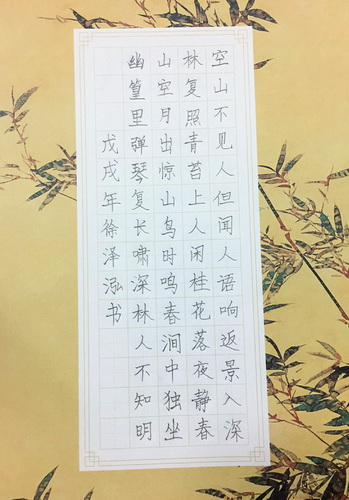 空山不见人但闻人语响返景入深
林复照青苔上人闲桂花落夜静春
山空月出惊山鸟时鸣春涧中独坐
幽篁里弹琴复长啸深林人不知明
戊戌年徐泽泓书